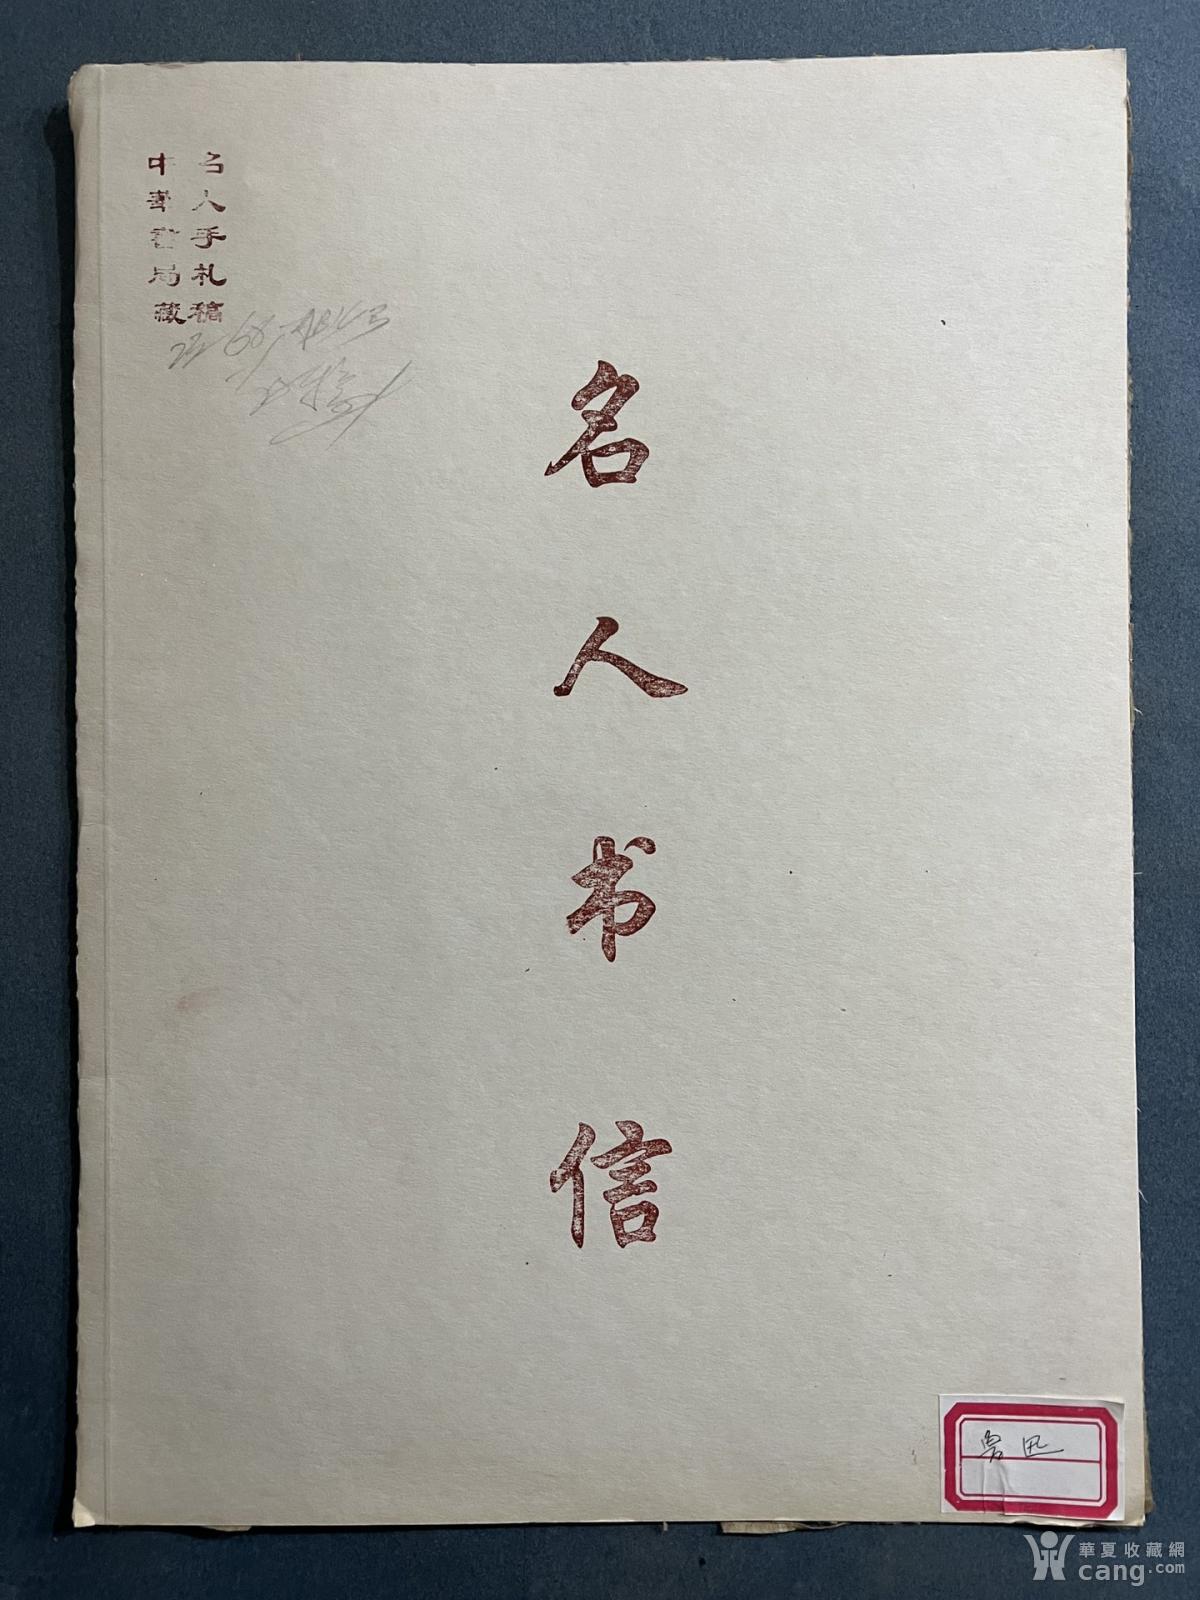 名人手札稿
中華書局藏
名人书信
鲁迅
華夏收藏網
cang.com